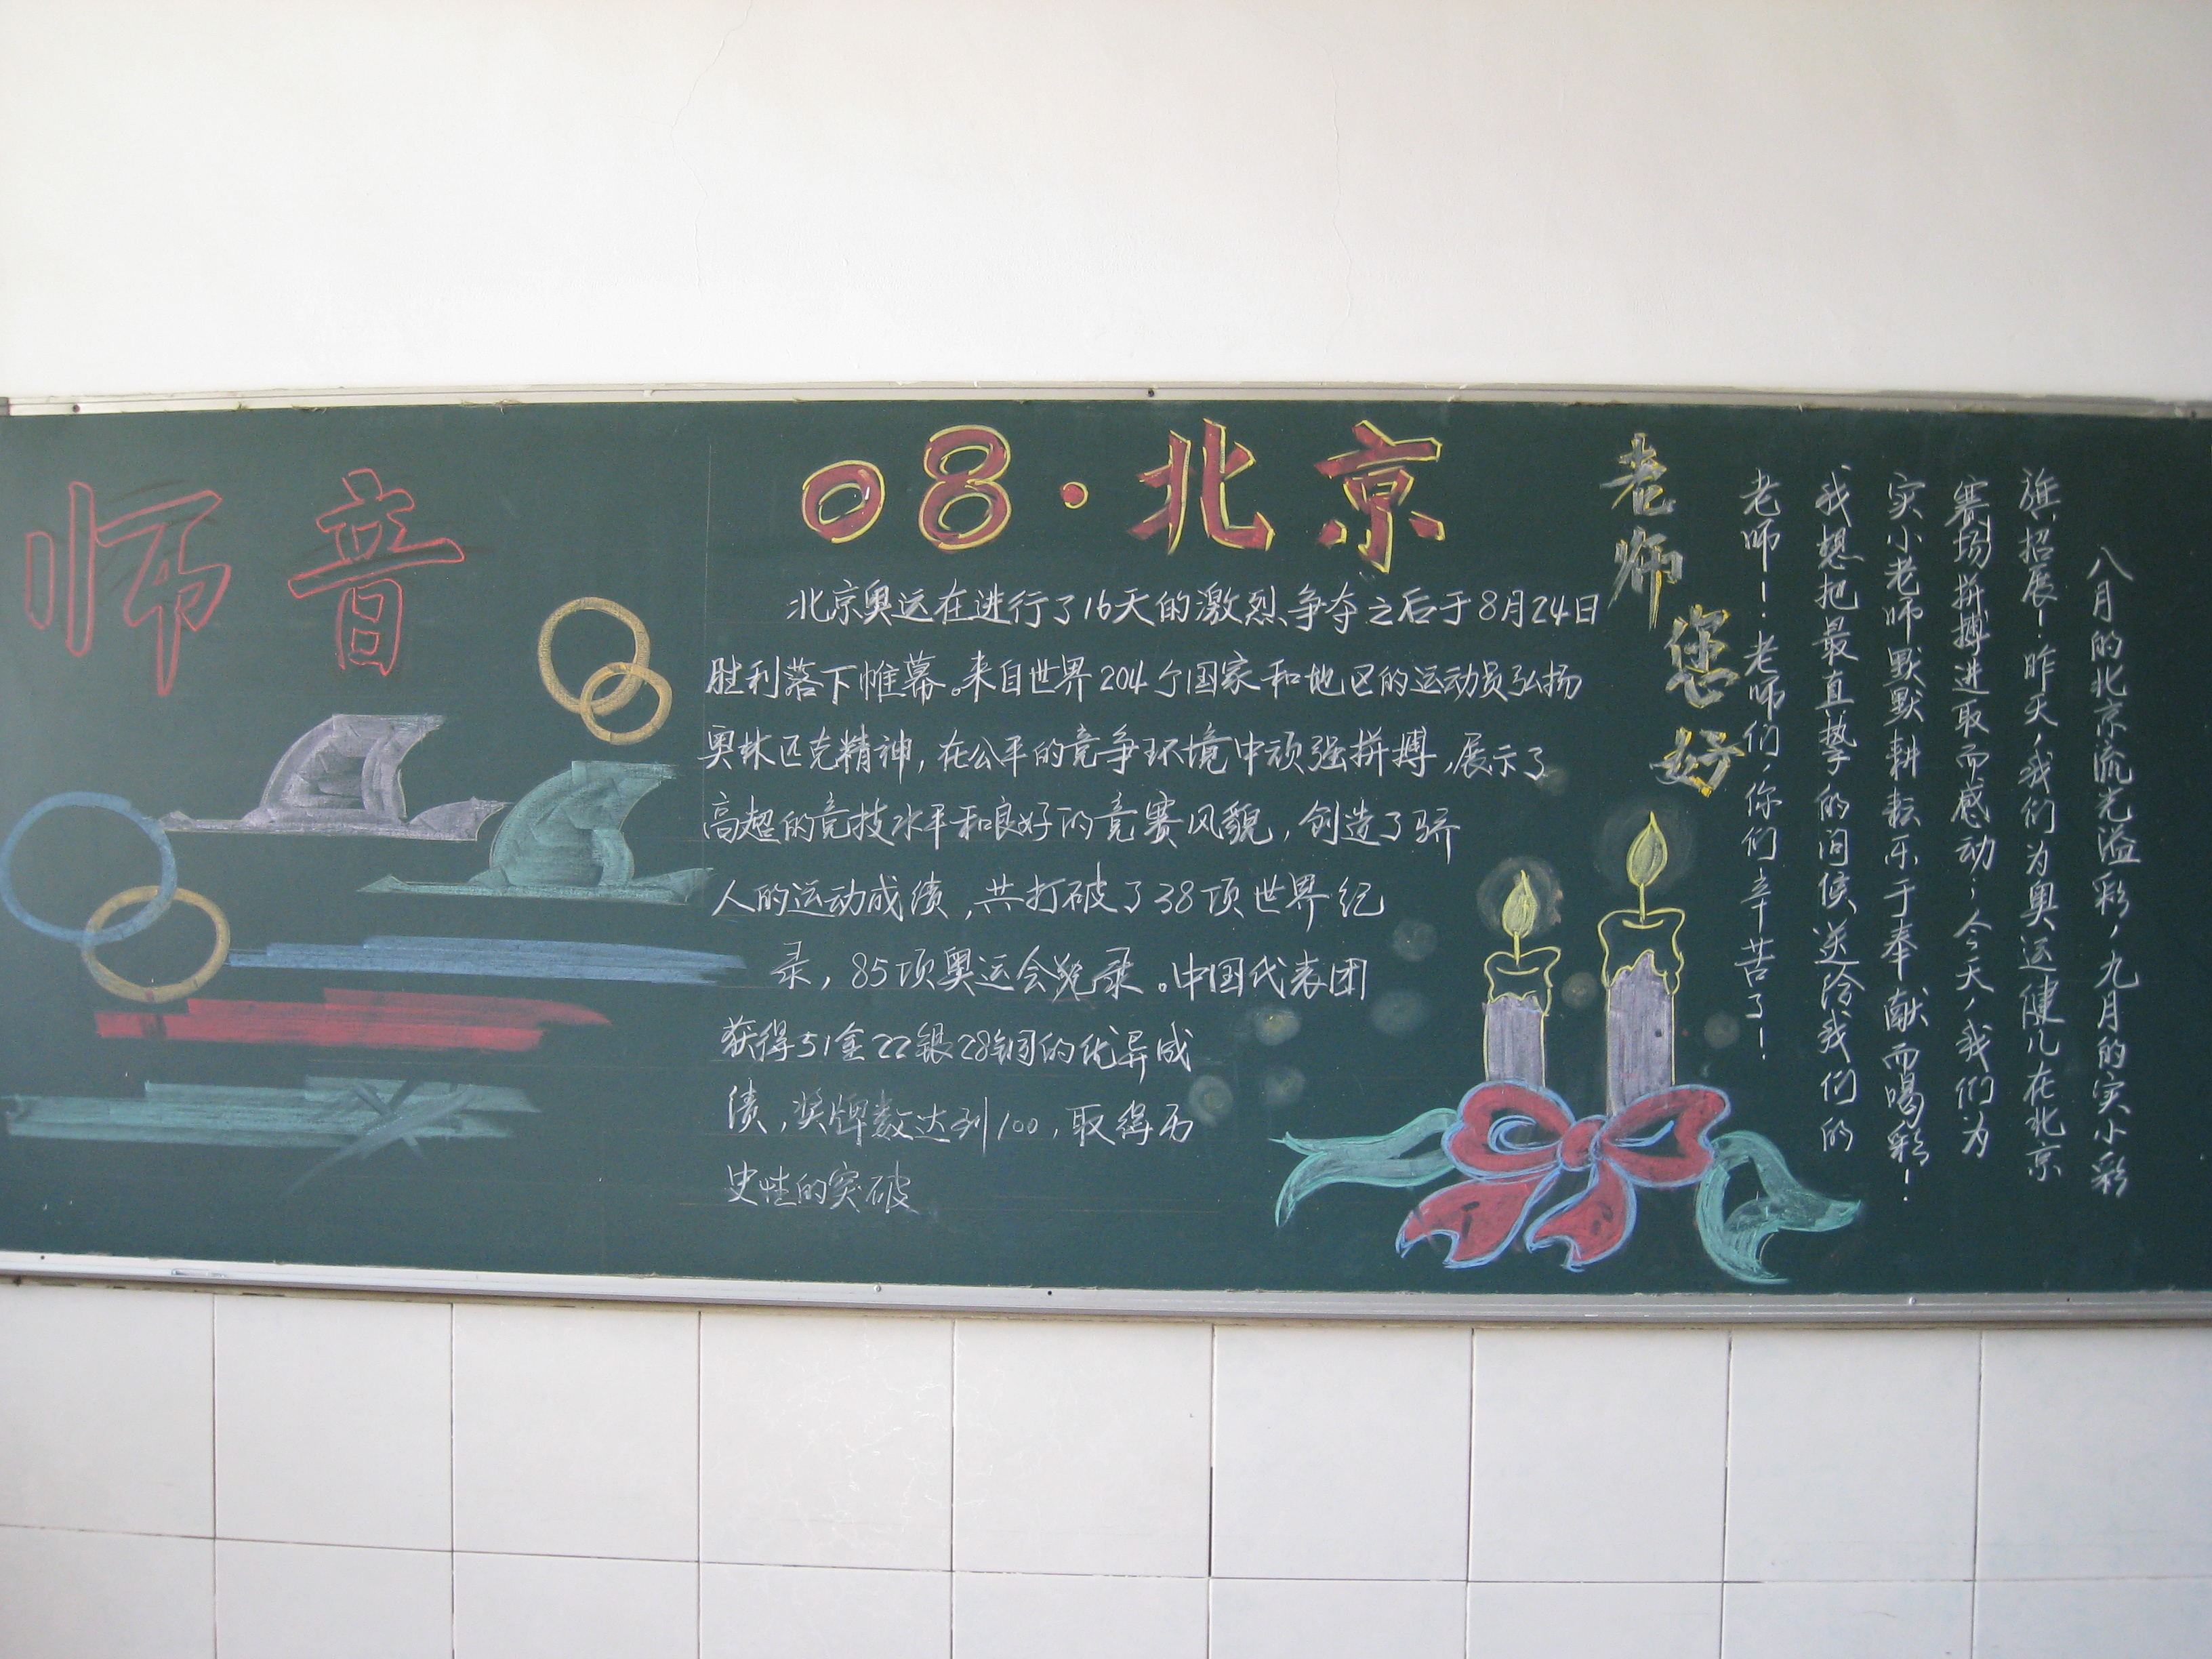 师音
08·北京
北京奥运在进行了16天的激烈争夺之后于8月24日
胜利落下帷幕。来自世界204个国家和地区的运动员弘扬
奥林匹克精神，在公平的竞争环境中顽强拼搏，展示了
高超的竞技水平和良好的竞赛风貌，创造了骄
人的运动成绩，共打破了38项世界纪
录，85项奥运会纪录。中国代表团
获得51金22银28铜的优异成
绩，奖牌数达到100，取得历
史性的突破
老师
您好
八月的北京流光溢彩，九月的实小彩
旗招展！昨天，我们为奥运健儿在北京
赛场拼搏进取而感动；今天，我们为
实小老师默默耕耘乐于奉献而喝彩！
我想把最直挚的问候送给我们的
老师！老师们，你们辛苦了！